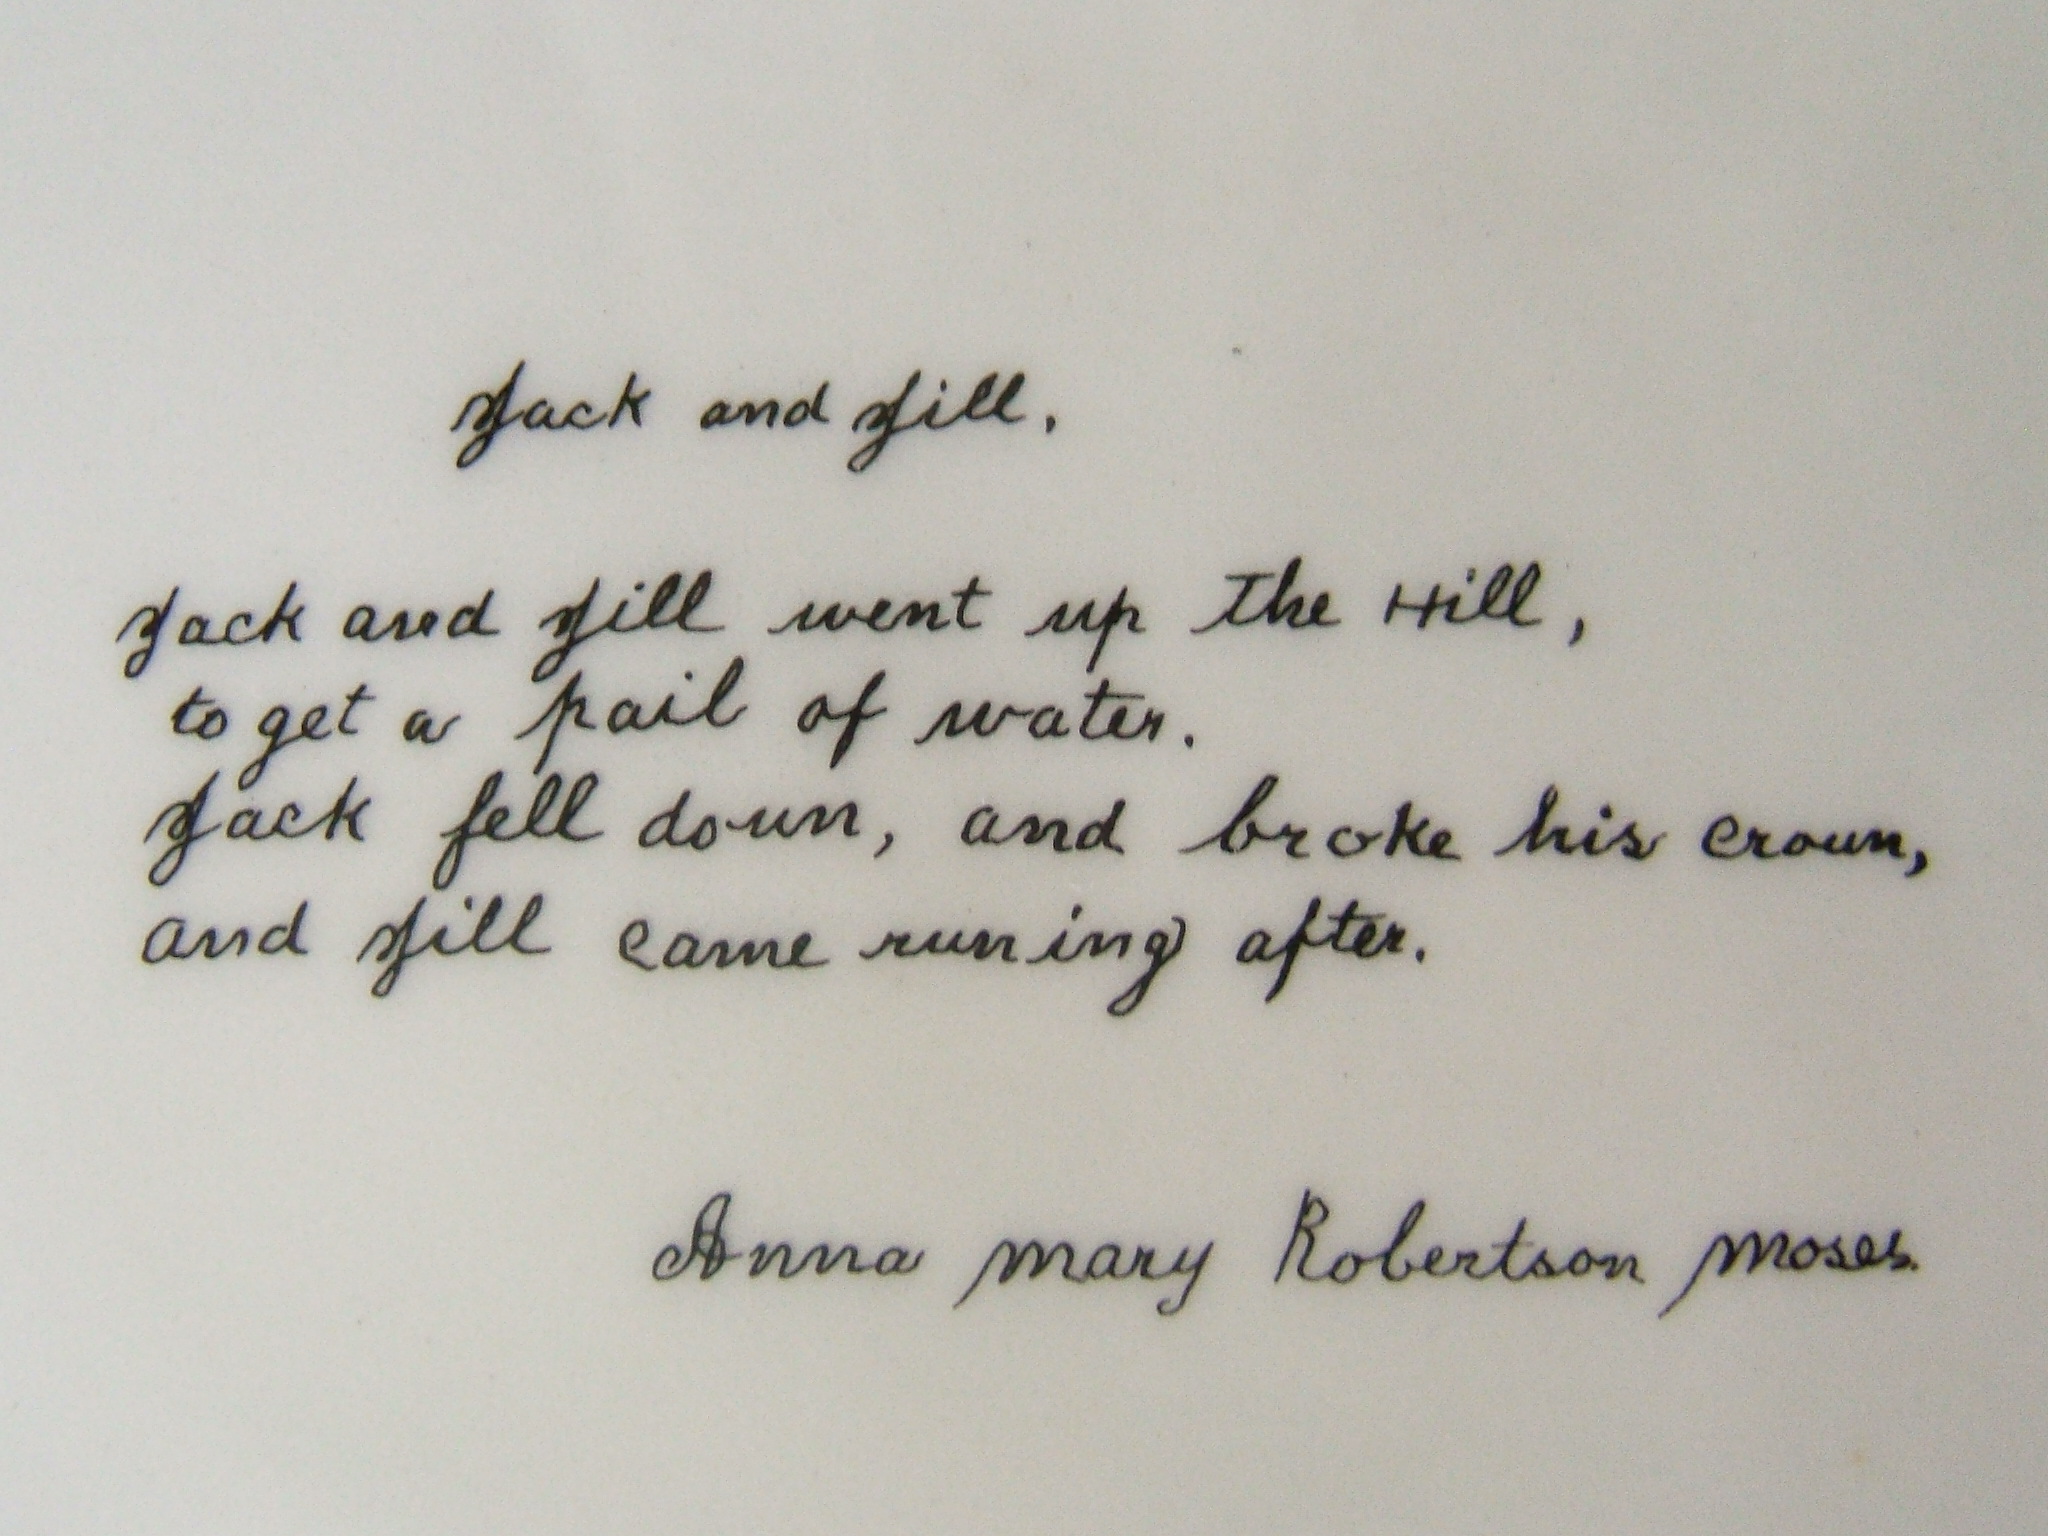 Jack and Jill.
Jack and Jill went up The Hill,
to get a pail of water.
Jack fell down, and broke his crown,
and Jill came runing after.
Anna mary Robertson moses.